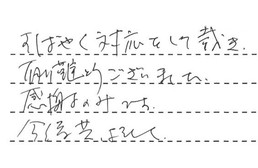 すばやく対応をして戴き、
有り難うございました。
感謝のみです。
今後共よろしく